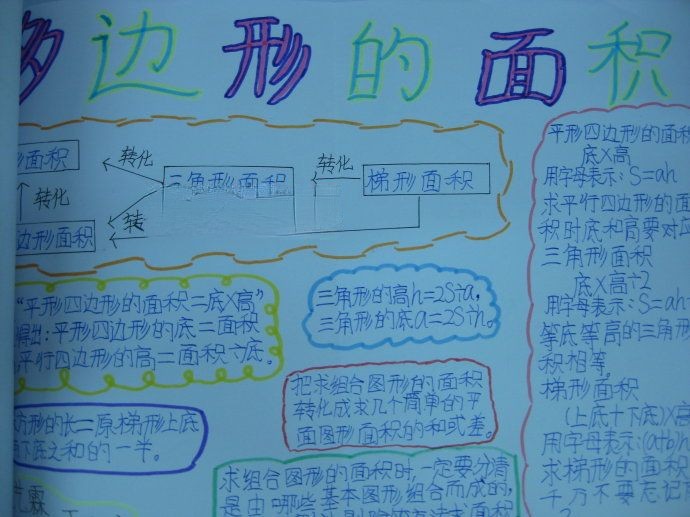 多边形的面积
形面积
转化
三角形面积
转化
梯形面积
转化
边形面积
转
"平形四边形的面积=底X高"
得出:平形四边形的底=面积
平行四边形的高=面积÷底。
三角形的高h=2S÷a,
三角形的底a=2S÷h。
把求组合图形的面积
转化成求几个简单的平
面图形面积的和或差。
方形的长=原梯形上底
与下底之和的一半。
求组合图形的面积时,一定要分清
是由哪些基本图形组合而成的,
平形四边形的面积
底X高
用字母表示:S=ah
求平行四边形的面
积时底和高要对应
三角形面积
底X高÷2
用字母表示:S=ah
等底等高的三角形
积相等。
梯形面积
(上底+下底)X高
用字母表示:(a+b)h
求梯形的面积
千万不要忘记